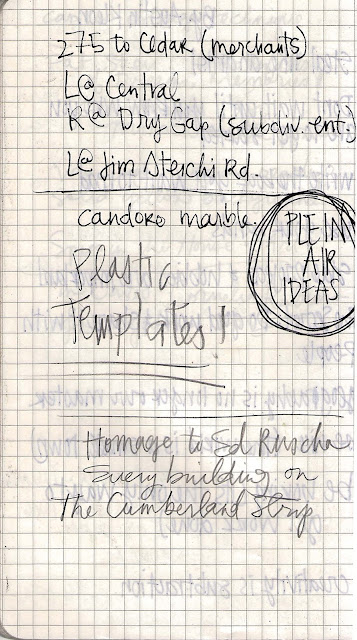 275 to Cedar (merchants)
L@ Central
R@ Dry Gap (subdiv. ent.)
L@ Jim Sterchi Rd.
candoro marble.
PLEIN
AIR
IDEAS
Plastic
Templates!
Homage to Ed Ruscha
Every building on
The Cumberland Strip
creativity is subtraction